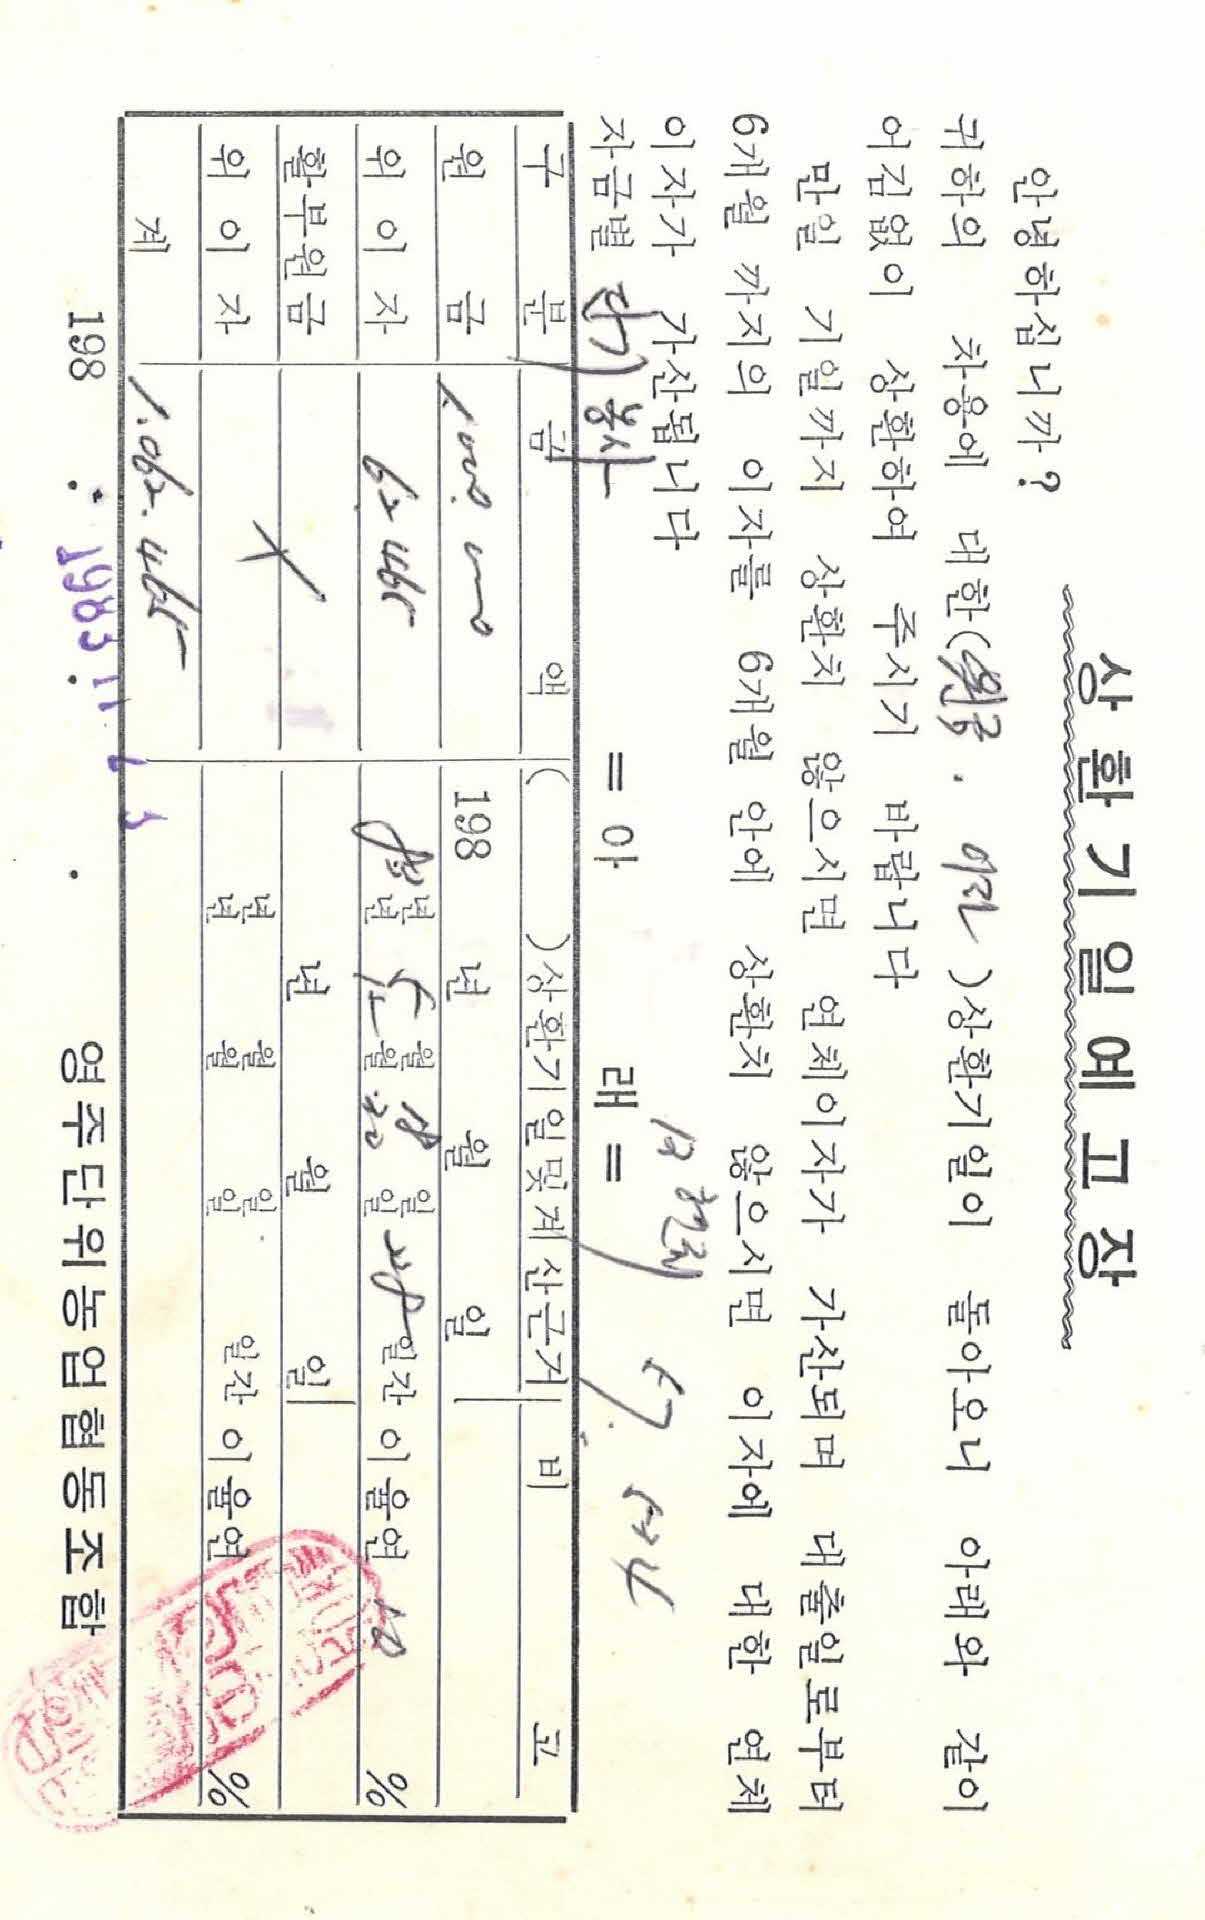 상환기일예고장
안녕하십니까?
귀하의 차용에 대한(원금. 이자)상환기일이 돌아오니 아래와 같이
어김없이 상환하여 주시기 바랍니다
만일 기일까지 상환치 않으시면 연체이자가 가산되며 대출일로부터
6개월 까지의 이자를 6개월 안에 상환치 않으시면 이자에 대한 연체
이자가 가산됩니다
자금별 = 아 래 =
구 분 금 액 ( )상환기일및계산근거 비 고
원 금 198 년 월 일
위 이 자 62465 83년 5월 18일 년 12월 20일 일간 이율연 10 %
할부원금 년 월 일
위 이 자 년 월 일 년 월 일 일간 이율연 %
계 1.062.465
198 . . .
1983 11
영주단위농업협동조합